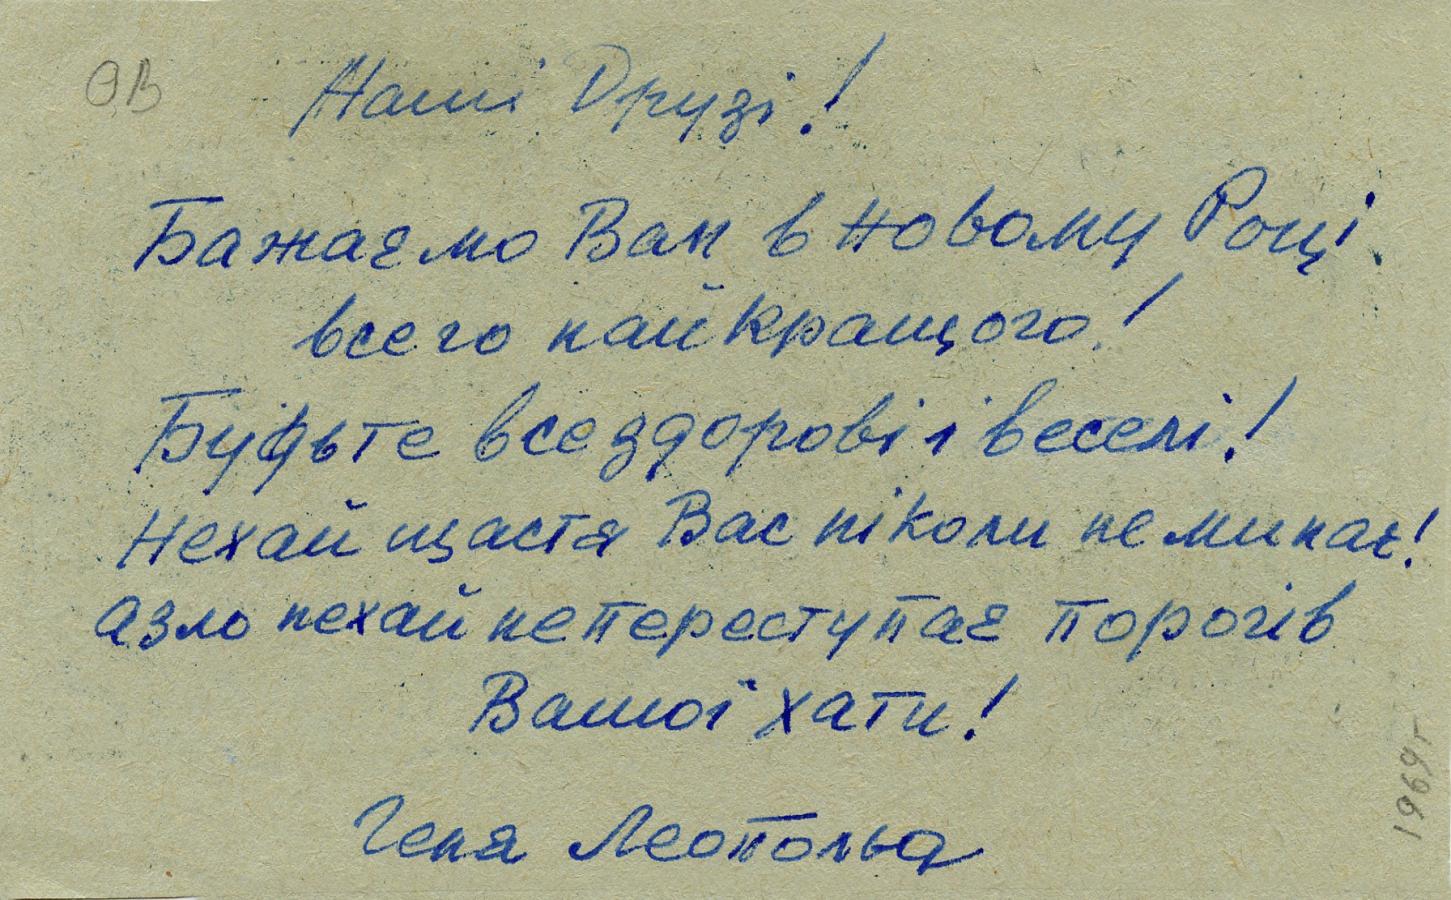 ОВ
Наші Друзі!
Бажаємо Вам в новому Році
всего найкращого!
Будьте все здорові і веселі!
Нехай щастя Вас ніколи не минає!
а зло нехай не переступає порогів
Вашої хати!
Геня Леопольд
1969 г